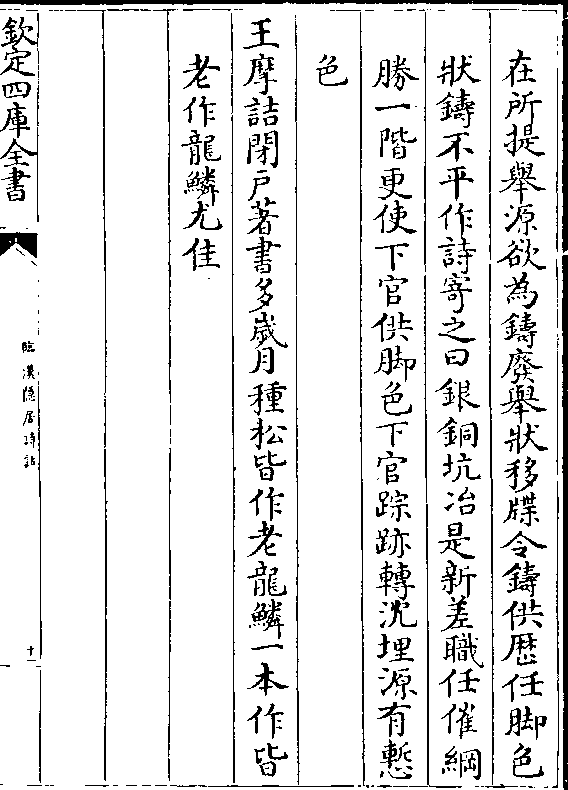 在所提舉源欲為鑄廢舉狀移牒令鑄供歴任脚色
狀鑄不平作詩寄之曰銀銅坑冶是新差職任催綱
勝一階更使下官供脚色下官踪跡轉沈埋源有慙
色
王摩詰閉戸著書多歲月種松皆作老龍鱗一本作皆
老作龍鱗尤佳
欽定四庫全書
臨漢隱居詩話
十一